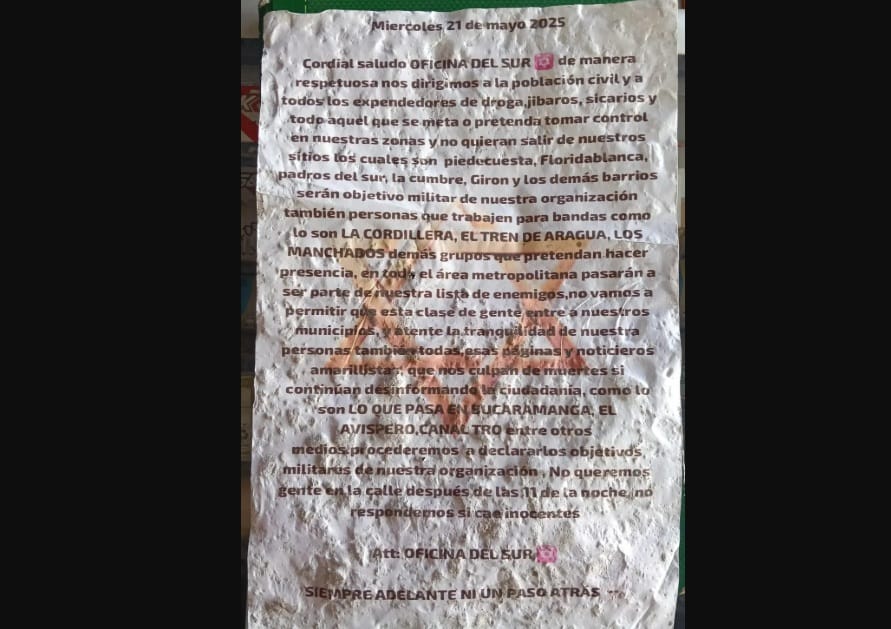 Miercoles 21 de mayo 2025
Cordial saludo OFICINA DEL SUR 🔯 de manera
respetuosa nos dirigimos a la población civil y a
todos los expendedores de droga,jibaros, sicarios y
todo aquel que se meta o pretenda tomar control
en nuestras zonas y no quieran salir de nuestros
sitios los cuales son piedecuesta, Floridablanca,
padros del sur, la cumbre, Giron y los demás barrios
serán objetivo militar de nuestra organización
también personas que trabajen para bandas como
lo son LA CORDILLERA, EL TREN DE ARAGUA, LOS
MANCHADOS demás grupos que pretendan hacer
presencia, en todo el área metropolitana pasarán a
ser parte de nuestra lista de enemigos,no vamos a
permitir que esta clase de gente entre a nuestros
municipios, y atente la tranquilidad de nuestra
personas también todas,esas páginas y noticieros
amarillistas; que nos culpan de muertes si
continúan desinformando la ciudadanía, como lo
son LO QUE PASA EN BUCARAMANGA, EL
AVISPERO,CANAL TRO entre otros
medios,procederemos a declararlos objetivos
militares de nuestra organización . No queremos
gente en la calle después de las 11 de la noche, no
respondemos si cae inocentes
Att: OFICINA DEL SUR 🔯
SIEMPRE ADELANTE NI UN PASO ATRÁS